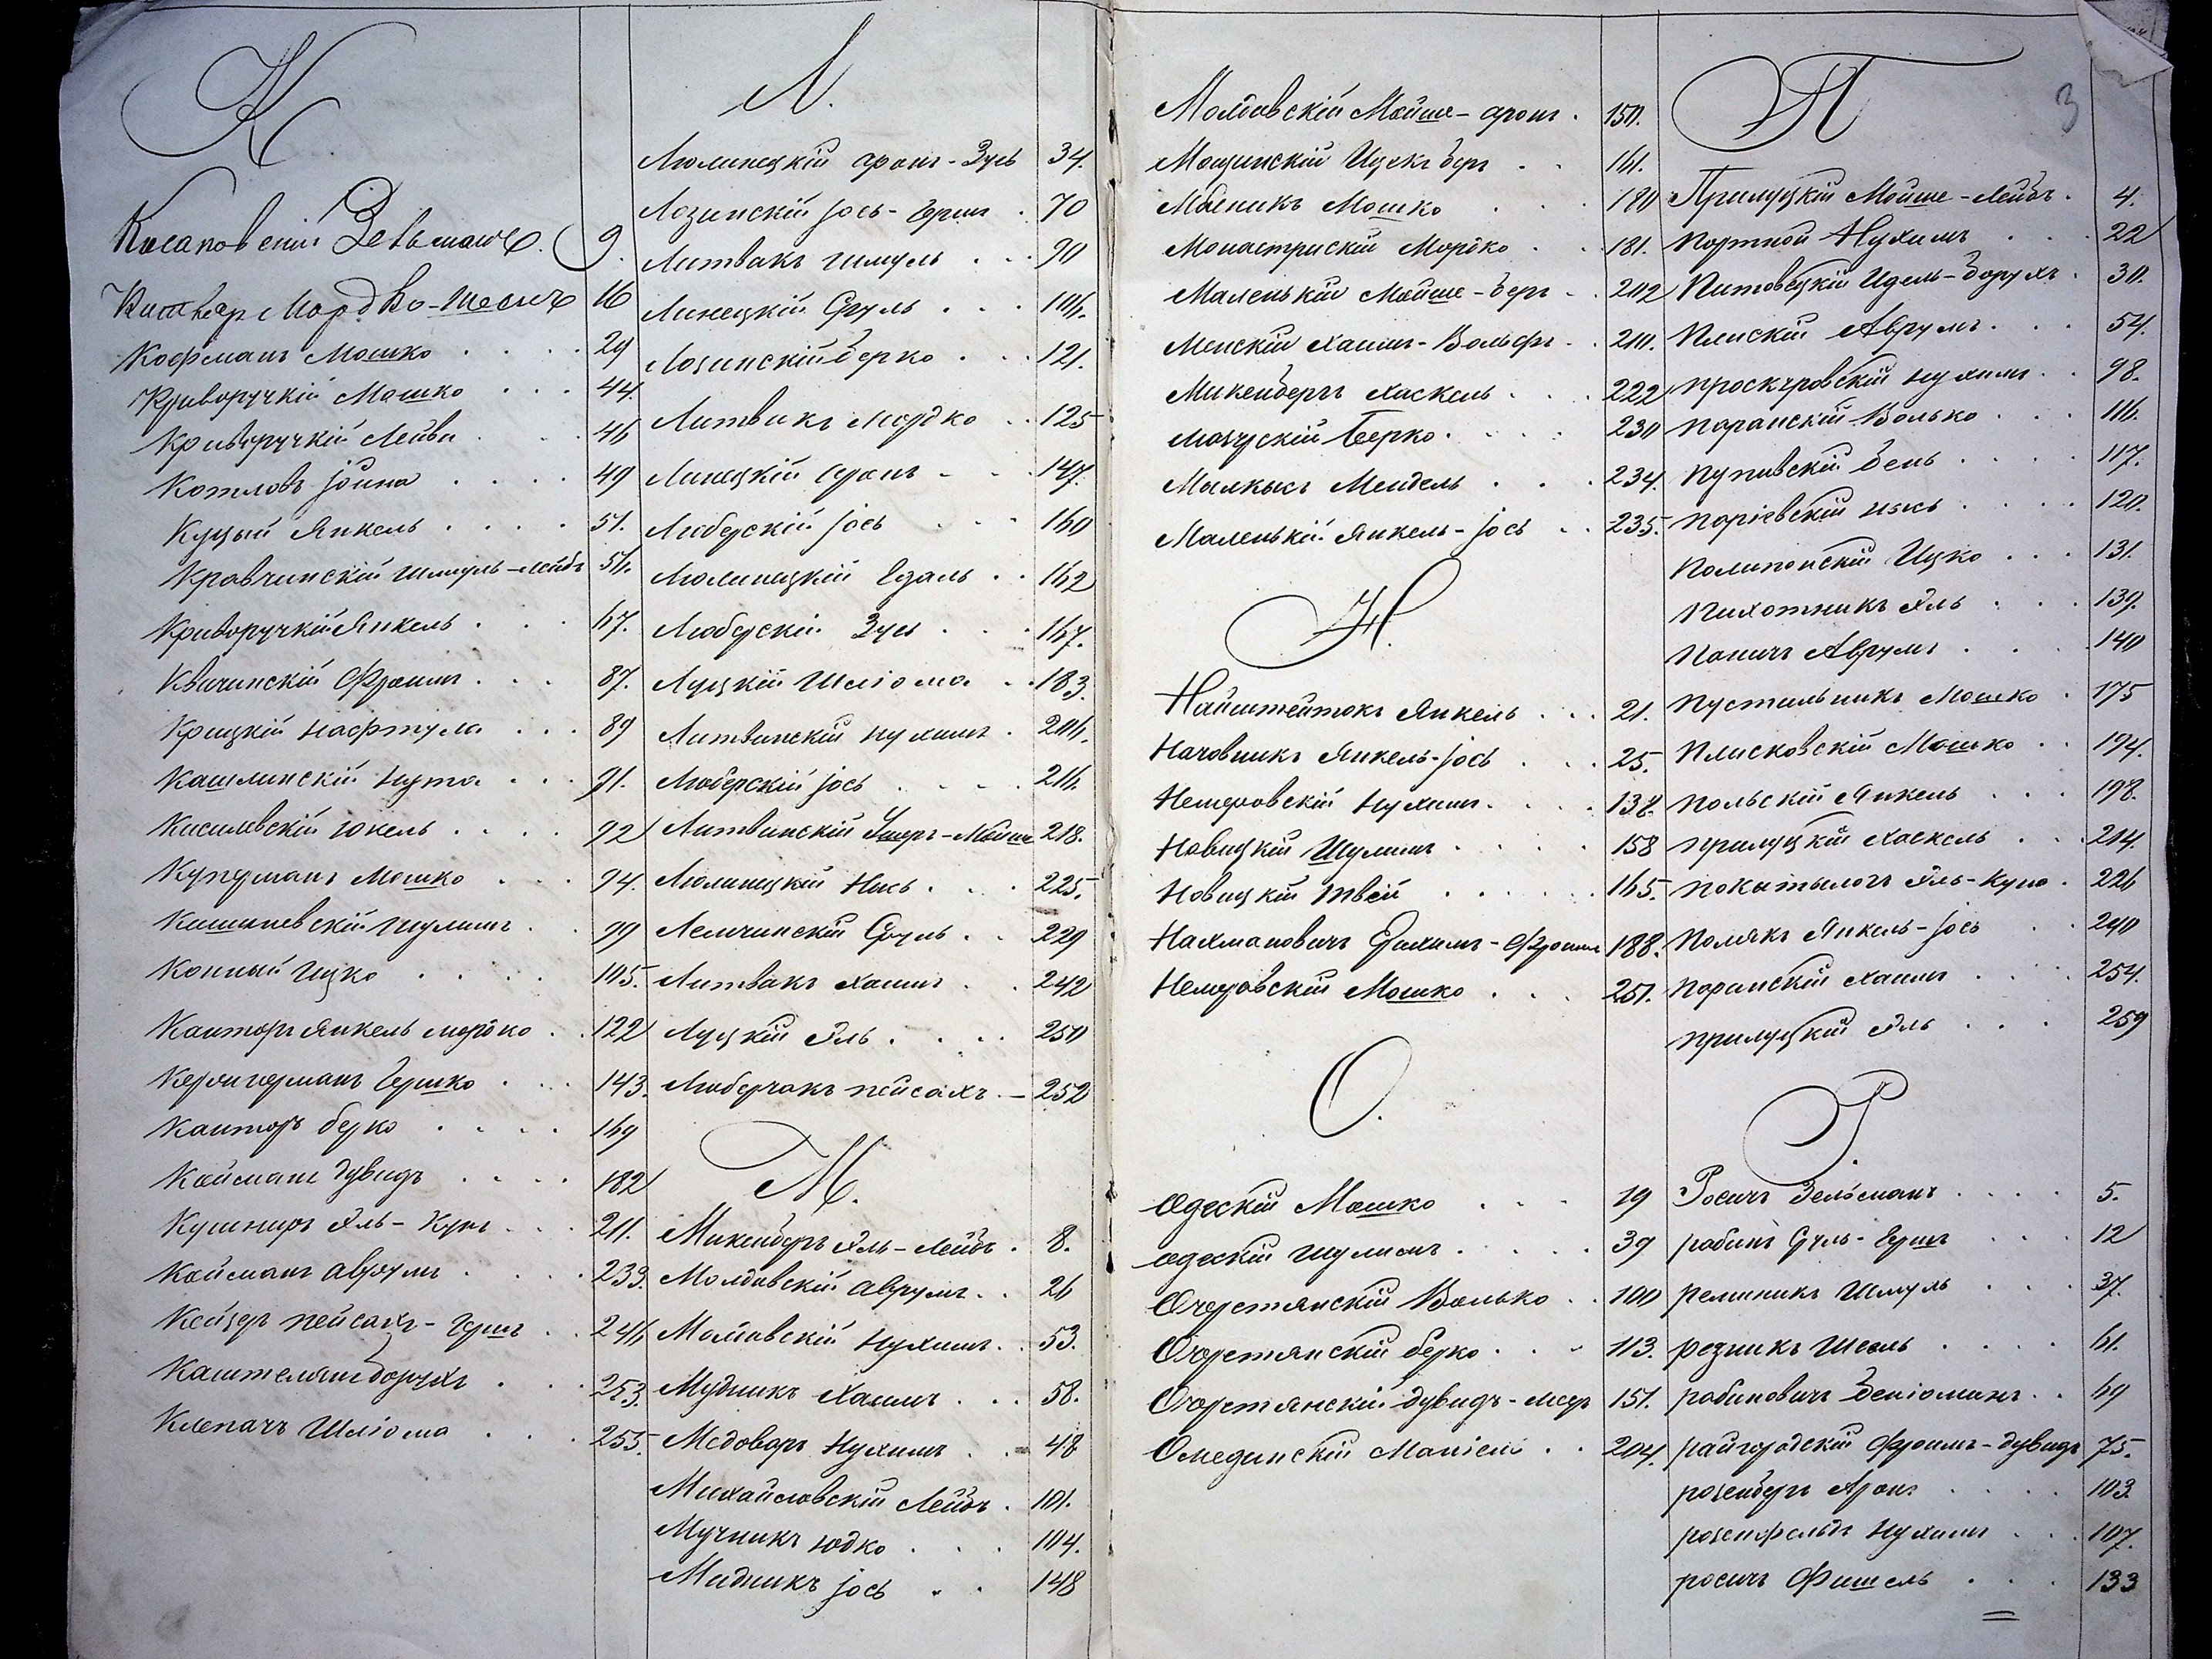 К
Косаповскій Зельманъ. 9.
Китверъ Мордко-Шоель 16
Кофманъ Мошко 29
Криворучкій Мошко 44.
Криворучкій Лейба 46
Котловъ Іойна 49
Куцый Янкель 51.
Кравчинскій Шмуль-Лейбъ 56.
Криворучкій Янкель 67.
Квичинскій Фроимъ 87.
Крицкій Нафтула 89
Кашлинскій Нута 91.
Кисилевскій Юкель 92
Куперманъ Мошко 94.
Кишиневскій Шулимъ 99
Конный Ицко 105.
Канторъ Янкель Мордко 122
Керонгерманъ Гершко 143.
Канторъ Берко 169
Койманъ Дувидъ 182
Кушниръ Эль-Куна 211.
Койсманъ Аврумъ 233.
Кейзеръ Пейсахъ-Гершъ 246
Каштелянъ Борухъ 253.
Клепачъ Шліома 255.
Л.
Люлинецкій Аронъ-Зусь 34.
Лозинскій Іось-Гершъ 70
Литвакъ Шмуль 90
Линецкій Сруль 106.
Лозинскій Берко 121.
Литвакъ Мордко 125
Линецкій Аронъ 147.
Люберскій Іось 160
Люлинецкій Гдаль 162
Люберскій Зусь 167.
Луцкій Шліома 183.
Литвинскій Нухимъ 206.
Люберскій Іось 216.
Литвинскій Ушеръ-Мойше 218.
Люлинецкій Нись 225.
Лемчинскій Сруль 229
Литвакъ Хаимъ 242
Луцкій Эль 250
Люберчакъ Пейсахъ 252
М.
Микенберъ Эль-Лейбъ 8.
Молдавскій Аврумъ 26
Молдавскій Нухимъ 53.
Мудникъ Хаимъ 58.
Медоваръ Нухимъ 48
Михайловскій Лейбъ 101.
Мучникъ Юдко 104.
Мидникъ Іось 148
Молдавскій Мойше-Аронъ 150.
Мощинскій Ицекъ Беръ 161.
Масникъ Мошко 180
Монастрискій Мордко 181.
Маленькій Мойше-Беръ 202
Менскій Хаимъ-Вольфъ 210.
Микенбергъ Хаскель 222
Мазурскій Берко 230
Малкысъ Мендель 234.
Маленькій Янкель-Іось 235.
Н.
Найштейтокъ Янкель 21.
Наровникъ Янкель-Іось 25.
Немеровскій Нухимъ 138.
Новицкій Шулимъ 158
Новицкій Твей 165.
Нахмановичъ Рахимъ-Фроимъ 188.
Немеровскій Мошко 251.
О.
Одескій Мошко 19
Одескій Шулимъ 39
Очеретянскій Волько 100
Очеретянскій Берко 113.
Очеретянскій Дувидъ-Меер 151.
Омединскій Маніеш 204.
П
3
Прилуцкій Мойше-Лейбъ 4.
Портной Нухимъ 22
Питовецкій Идель-Борухъ 30.
Плискій Аврумъ 54.
Проскуровскій Нухимъ 98.
Поранскій Волько 116.
Пупивскій Бень 117.
Поріевскій Нысь 120.
Полипонскій Ицко 131.
Пихотникъ Эль 139.
Попичъ Аврумъ 140
Пустильникъ Мошко 175
Плисковскій Мошко 194.
Польскій Янкель 198.
Прилуцкій Хаскель 214.
Покатылогъ Эль-Куна 226
Полякъ Янкель-Іось 240
Поранскій Хаимъ 254.
Прилуцкій Эль 259
Р.
Росичъ Зельманъ 5.
Рабинъ Сруль-Гершъ 12
Реминикъ Шмуль 37.
Резникъ Шоель 61.
Рабиновичъ Беніоминъ 69
Райгородскій Фроимъ-Дувидъ 75.
Розенберъ Аронъ 103.
Розенфельдъ Нухимъ 107.
Росичъ Фишель 133